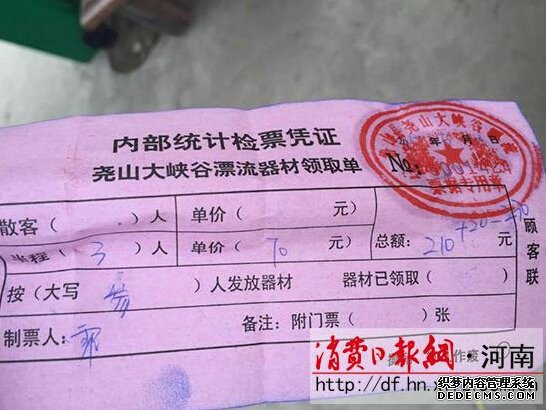 内部统计检票凭证
尧山大峡谷漂流器材领取单
尧山大峡谷漂流
年 月 日
No:
散客( )人 单价( 元)
半程( 3 )人 单价( 70 元) 总额: 210 +20=230
按(大写 叁 )人发放器材 器材已领取( )
制票人: 备注: 附门票( )张
顾客联
作废
消费日报網·河南
http://df.hn.
织梦内容管理系统
DEDECMS.COM